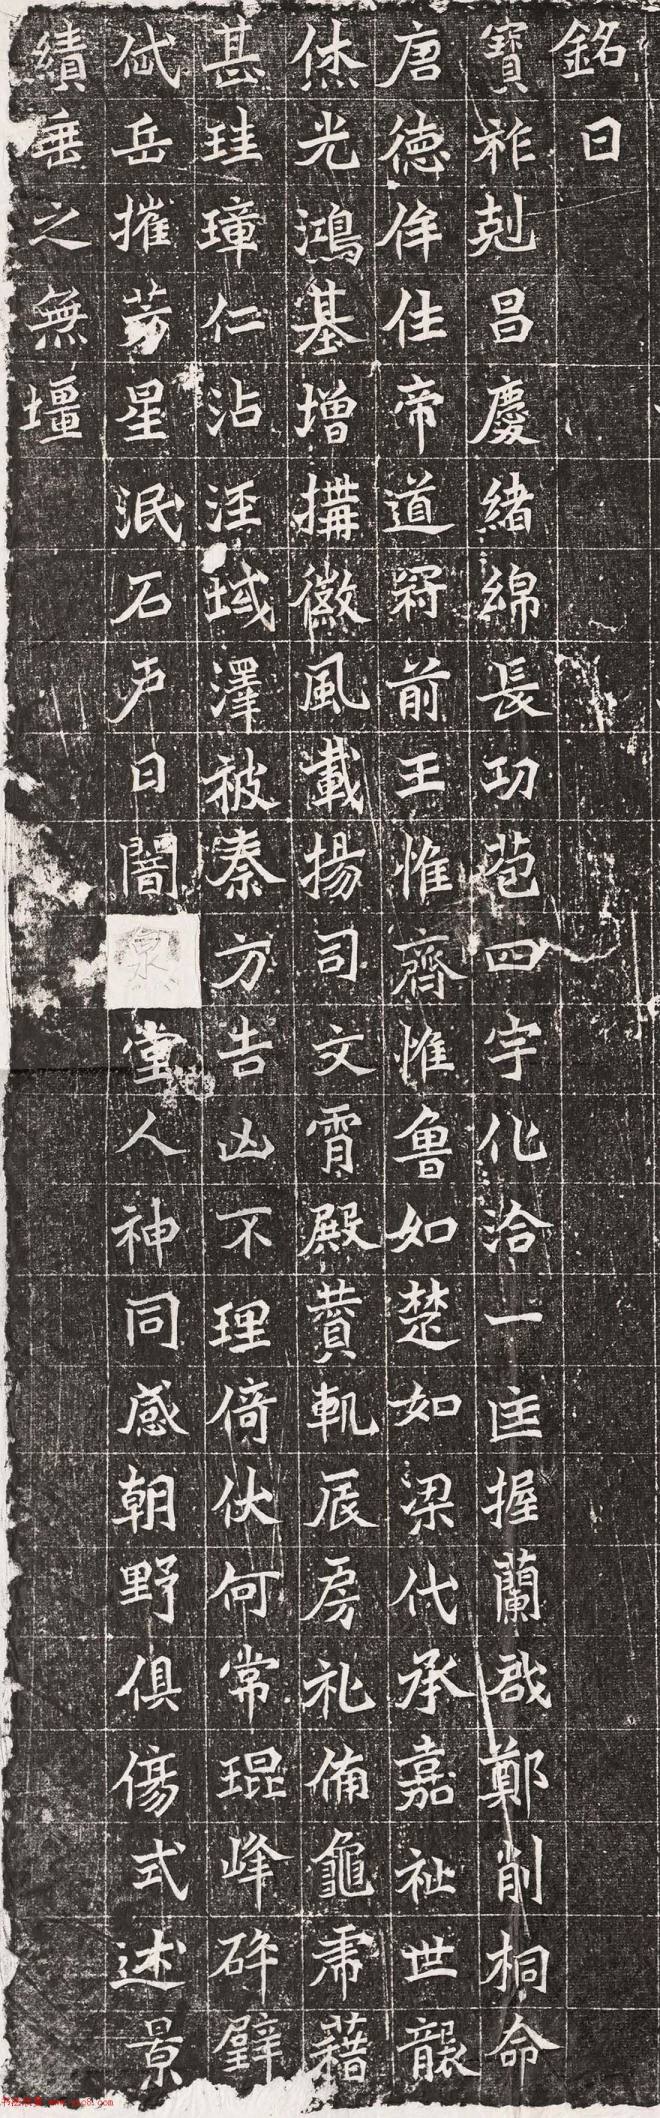 銘曰
寶祚剋昌慶緒綿長功苞四宇化洽一匡握蘭啟鄭削桐命
唐德侔往帝道冠前王惟齊惟魯如楚如梁代承嘉祉世襲
烋光鴻基增構徽風載揚司文霄殿賛軌辰房礼備龜藉
甚珪璋仁沾汪域澤被秦方告凶不理倚伏何常琨峰碎璧
岳摧芳星泯石声日闇泉堂人神同感朝野俱傷式述景
績垂之無壃